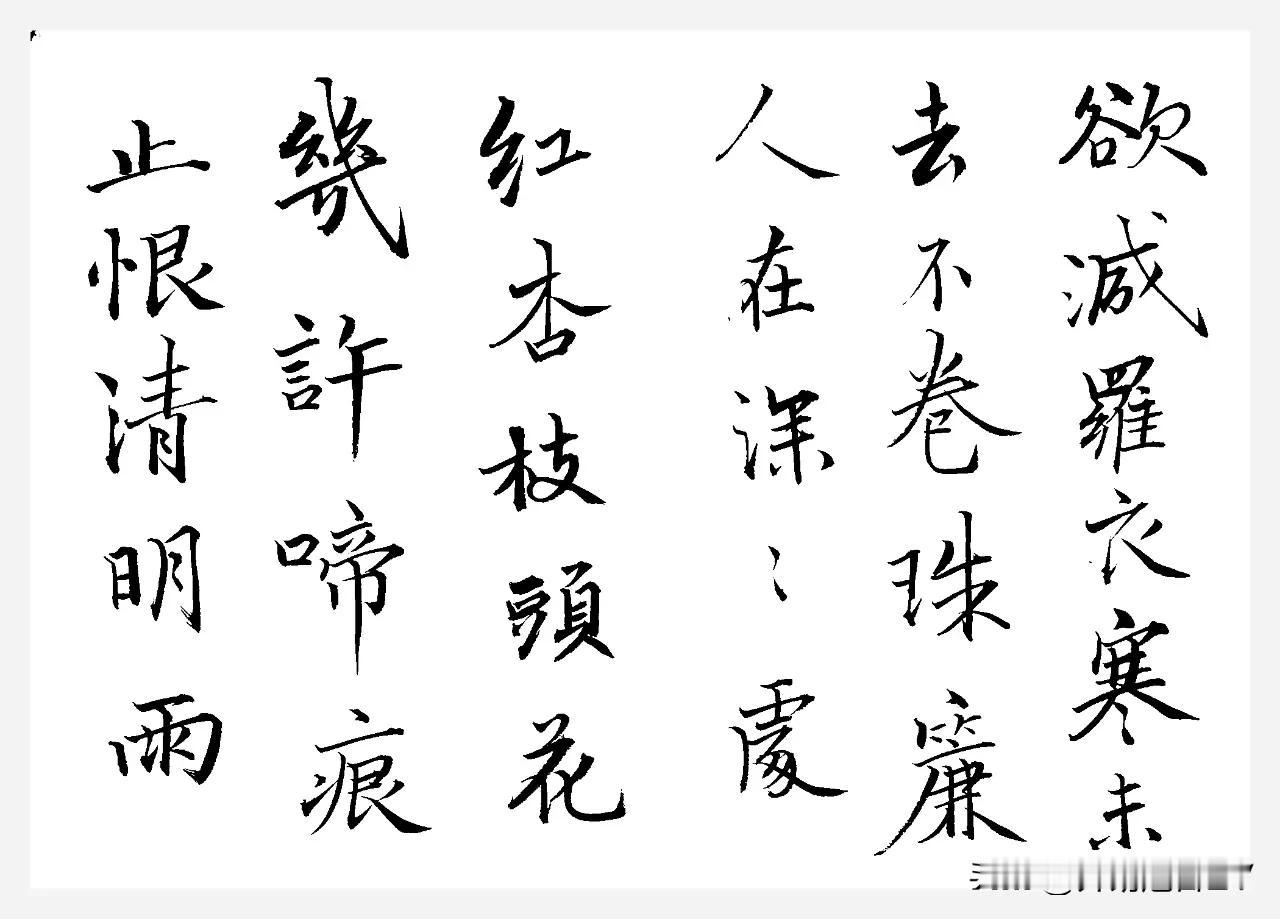 欲減羅衣寒未
去不卷珠簾
人在深〻處
紅杏枝頭花
幾許啼痕
止恨清明雨